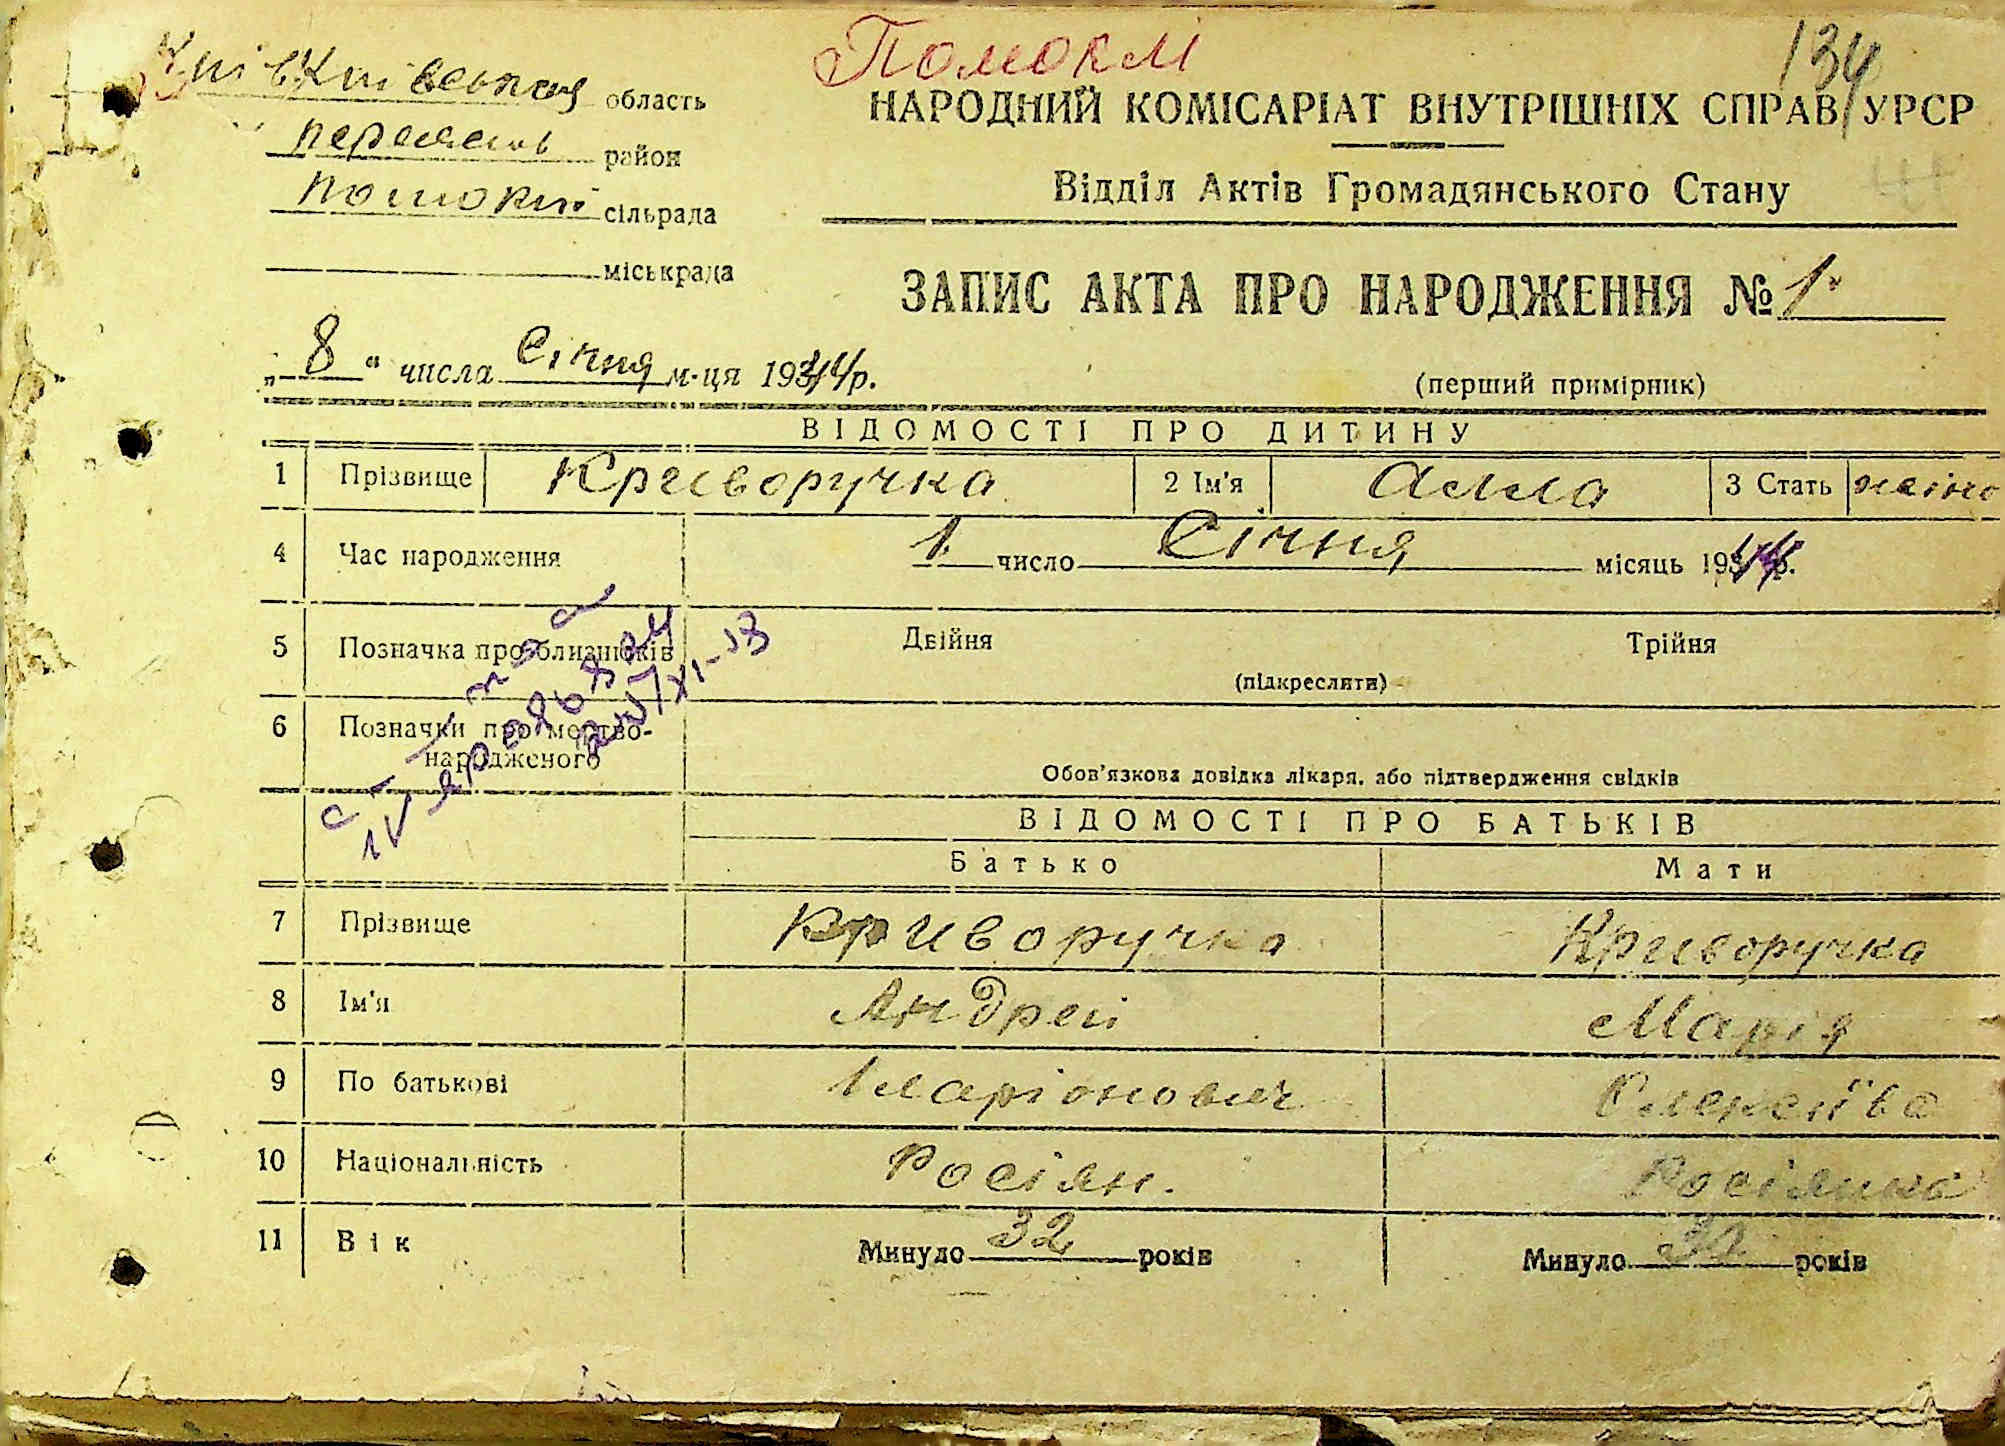 Потоки
134
Київська область
НАРОДНИЙ КОМІСАРІАТ ВНУТРІШНІХ СПРАВ УРСР
район
Відділ Актів Громадянського Стану
Потоки сільрада
міськрада
ЗАПИС АКТА ПРО НАРОДЖЕННЯ № 1.
„ 8 “ числа Січня м-ця 1944 р.
(перший примірник)
ВІДОМОСТІ ПРО ДИТИНУ
1 Прізвище Криворучка 2 Ім'я Алла 3 Стать жіно
4 Час народження 1. число Січня місяць 1944 р.
5 Позначка про близнюків Двійня Трійня
(підкреслити)
6 Позначки про мертво-
народженого
Обов'язкова довідка лікаря, або підтвердження свідків
ВІДОМОСТІ ПРО БАТЬКІВ
Батько Мати
7 Прізвище Криворучка Криворучка
8 Ім'я Андрей Марія
9 По батькові Іларіонович Олексеївна
10 Національність Росіян. Росіянка
11 Вік Минуло 32 років Минуло 32 років